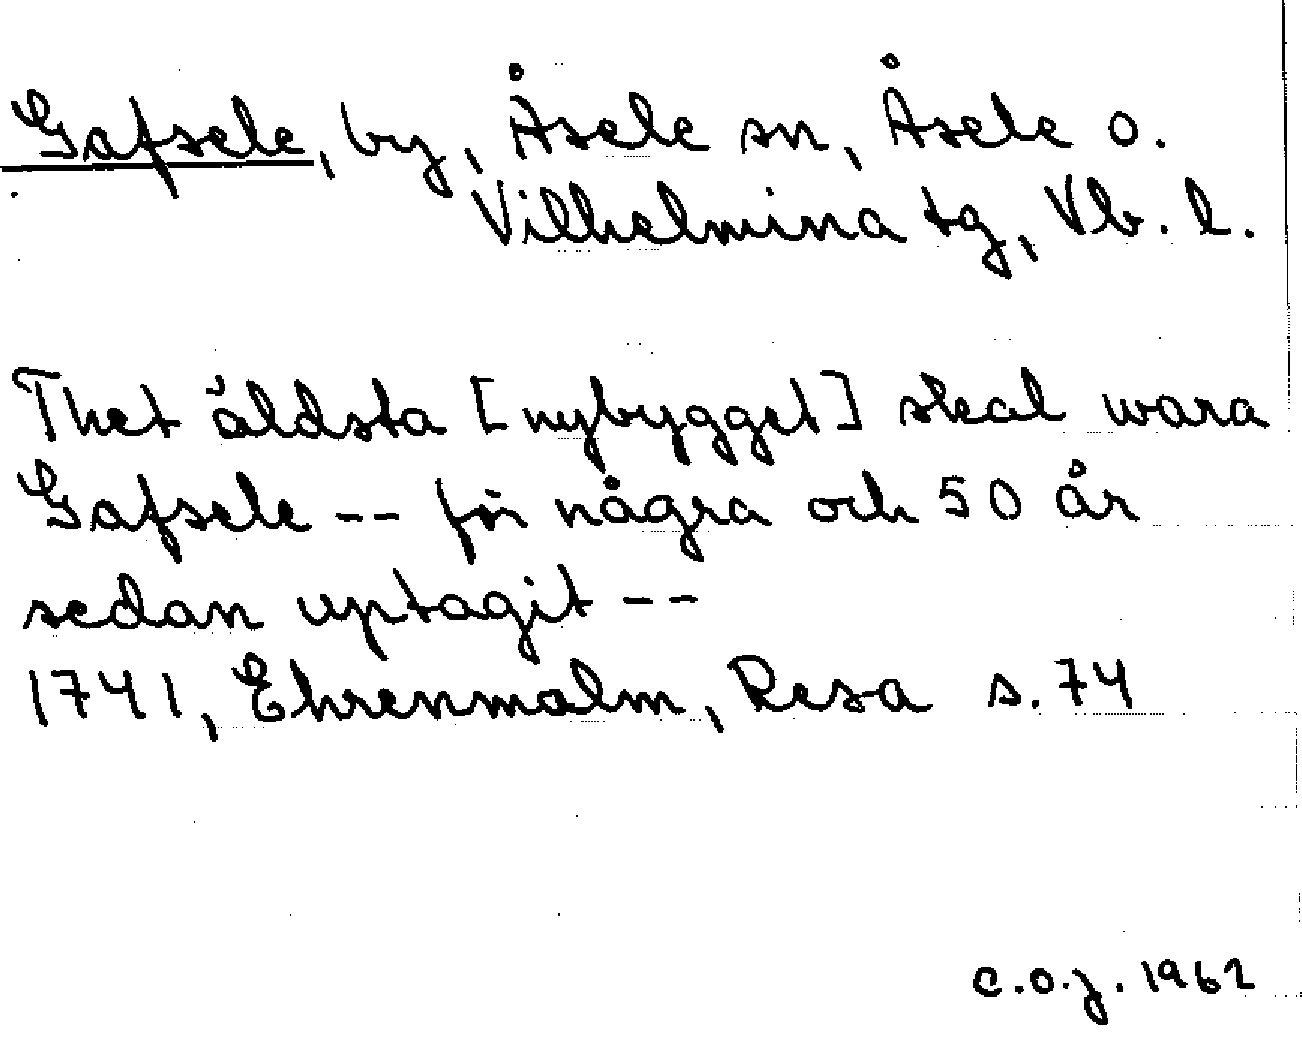 Gafsele, by, Åsele sn, Åsele o.
Vilhelmina tg, Vb. l.
Thet äldsta [nybygget] skal wara
Gafsele -- för några och 50 år
sedan uptagit --
1741, Ehrenmalm, Resa s. 74
C.O.J. 1962